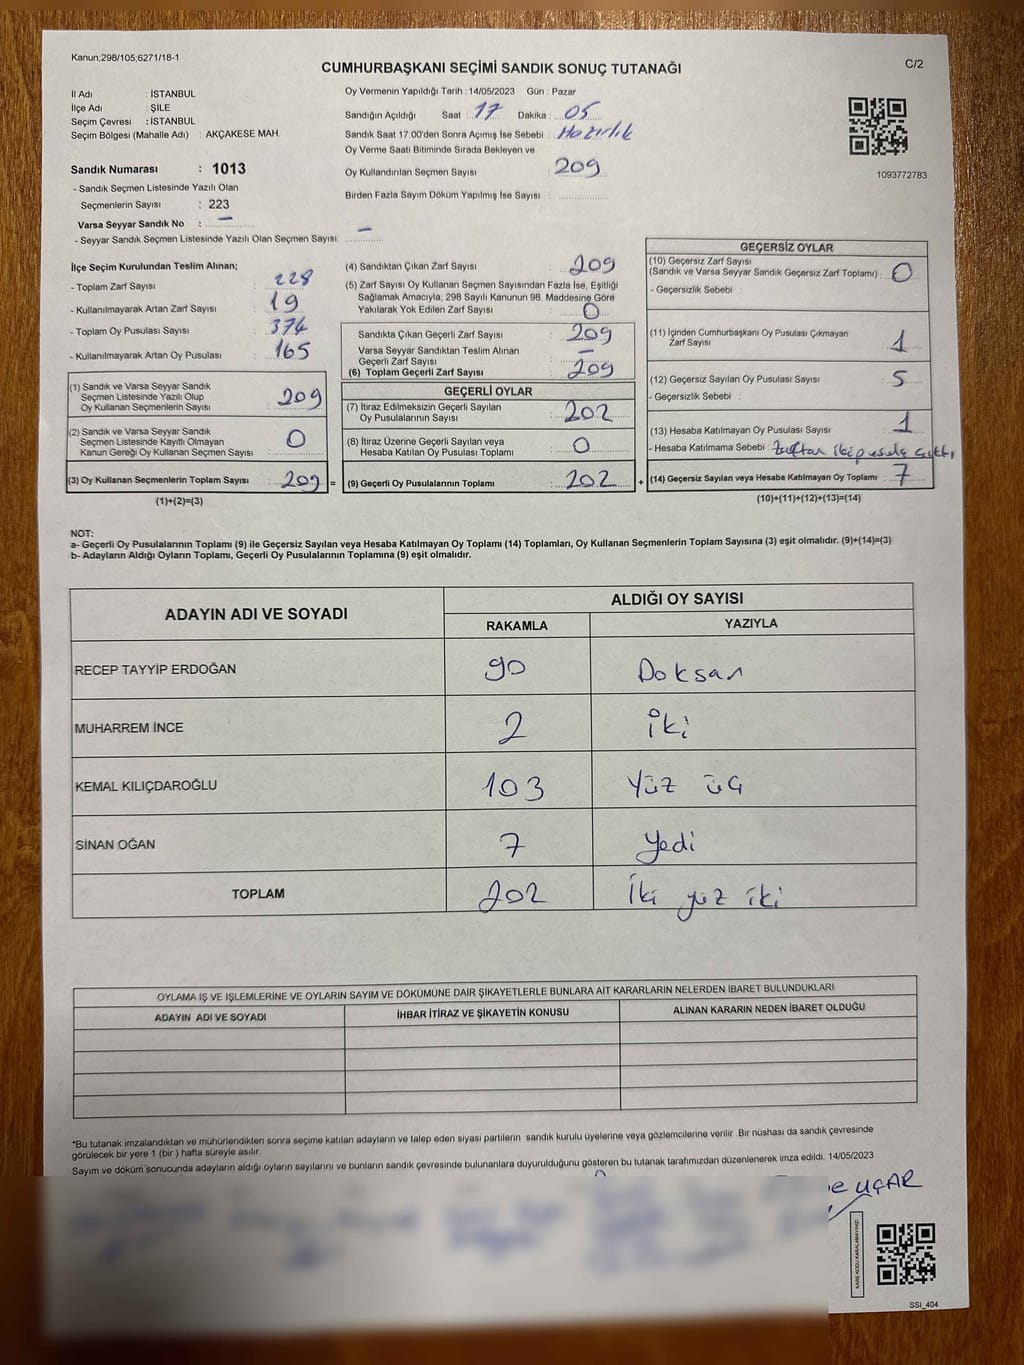 Kanun;298/105;6271/18-1
C/2
CUMHURBAŞKANI SEÇİMİ SANDIK SONUÇ TUTANAĞI
İl Adı : İSTANBUL
İlçe Adı : ŞİLE
Seçim Çevresi : İSTANBUL
Seçim Bölgesi (Mahalle Adı) : AKÇAKESE MAH.
Sandık Numarası : 1013
- Sandık Seçmen Listesinde Yazılı Olan
Seçmenlerin Sayısı : 223
Varsa Seyyar Sandık No : –
- Seyyar Sandık Seçmen Listesinde Yazılı Olan Seçmen Sayısı: –
Oy Vermenin Yapıldığı Tarih : 14/05/2023 Gün : Pazar
Sandığın Açıldığı Saat : 17 Dakika : 05
Sandık Saat 17.00'den Sonra Açımış İse Sebebi : Hazırlık
Oy Verme Saati Bitiminde Sırada Bekleyen ve
Oy Kullandırılan Seçmen Sayısı : 209
Birden Fazla Sayım Döküm Yapılmış İse Sayısı :
1093772783
İlçe Seçim Kurulundan Teslim Alınan;
- Toplam Zarf Sayısı : 228
- Kullanılmayarak Artan Zarf Sayısı : 19
- Toplam Oy Pusulası Sayısı : 374
- Kullanılmayarak Artan Oy Pusulası : 165
(1) Sandık ve Varsa Seyyar Sandık
Seçmen Listesinde Yazılı Olup
Oy Kullanan Seçmenlerin Sayısı : 209
(2) Sandık ve Varsa Seyyar Sandık
Seçmen Listesinde Kayıtlı Olmayan
Kanun Gereği Oy Kullanan Seçmen Sayısı : 0
(3) Oy Kullanan Seçmenlerin Toplam Sayısı : 209 =
(1)+(2)=(3)
(4) Sandıktan Çıkan Zarf Sayısı : 209
(5) Zarf Sayısı Oy Kullanan Seçmen Sayısından Fazla İse, Eşitliği
Sağlamak Amacıyla; 298 Sayılı Kanunun 98. Maddesine Göre
Yakılarak Yok Edilen Zarf Sayısı : 0
Sandıkta Çıkan Geçerli Zarf Sayısı : 209
Varsa Seyyar Sandıktan Teslim Alınan
Geçerli Zarf Sayısı : –
(6) Toplam Geçerli Zarf Sayısı : 209
GEÇERLİ OYLAR
(7) İtiraz Edilmeksizin Geçerli Sayılan
Oy Pusulalarının Sayısı : 202
(8) İtiraz Üzerine Geçerli Sayılan veya
Hesaba Katılan Oy Pusulası Toplamı : 0
(9) Geçerli Oy Pusulalarının Toplamı : 202 +
GEÇERSİZ OYLAR
(10) Geçersiz Zarf Sayısı
(Sandık ve Varsa Seyyar Sandık Geçersiz Zarf Toplamı) : 0
- Geçersizlik Sebebi :
(11) İçinden Cumhurbaşkanı Oy Pusulası Çıkmayan
Zarf Sayısı : 1
(12) Geçersiz Sayılan Oy Pusulası Sayısı : 5
- Geçersizlik Sebebi :
(13) Hesaba Katılmayan Oy Pusulası Sayısı : 1
- Hesaba Katılmama Sebebi : Zarftan iki pusula çıktı
(14) Geçersiz Sayılan veya Hesaba Katılmayan Oy Toplamı : 7
(10)+(11)+(12)+(13)=(14)
NOT:
a- Geçerli Oy Pusulasının Toplamı (9) ile Geçersiz Sayılan veya Hesaba Katılmayan Oy Toplamı (14) Toplamları, Oy Kullanan Seçmenlerin Toplam Sayısına (3) eşit olmalıdır. (9)+(14)=(3)
b- Adayların Aldığı Oyların Toplamı, Geçerli Oy Pusulalarının Toplamına (9) eşit olmalıdır.
ADAYIN ADI VE SOYADI
ALDIĞI OY SAYISI
RAKAMLA YAZIYLA
RECEP TAYYİP ERDOĞAN 90 Doksan
MUHARREM İNCE 2 İki
KEMAL KILIÇDAROĞLU 103 Yüz üç
SİNAN OĞAN 7 Yedi
TOPLAM 202 İki yüz iki
OYLAMA İŞ VE İŞLEMLERİNE VE OYLARIN SAYIM VE DÖKÜMÜNE DAİR ŞİKAYETLERLE BUNLARA AİT KARARLARIN NELERDEN İBARET BULUNDUKLARI
ADAYIN ADI VE SOYADI İHBAR İTİRAZ VE ŞİKAYETİN KONUSU ALINAN KARARIN NEDEN İBARET OLDUĞU
*Bu tutanak imzalandıktan ve mühürlendikten sonra seçime katılan adayların ve talep eden siyasi partilerin sandık kurulu üyelerine veya gözlemcilerine verilir .Bir nüshası da sandık çevresinde
görülecek bir yere 1 (bir ) hafta süreyle asılır.
Sayım ve döküm sonucunda adayların aldığı oyların sayılarını ve bunların sandık çevresinde bulunanlara duyurulduğunu gösteren bu tutanak tarafımızdan düzenlenerek imza edildi. 14/05/2023
UÇAR
KARE KODU KARALAMAYINIZ!
SSİ_404